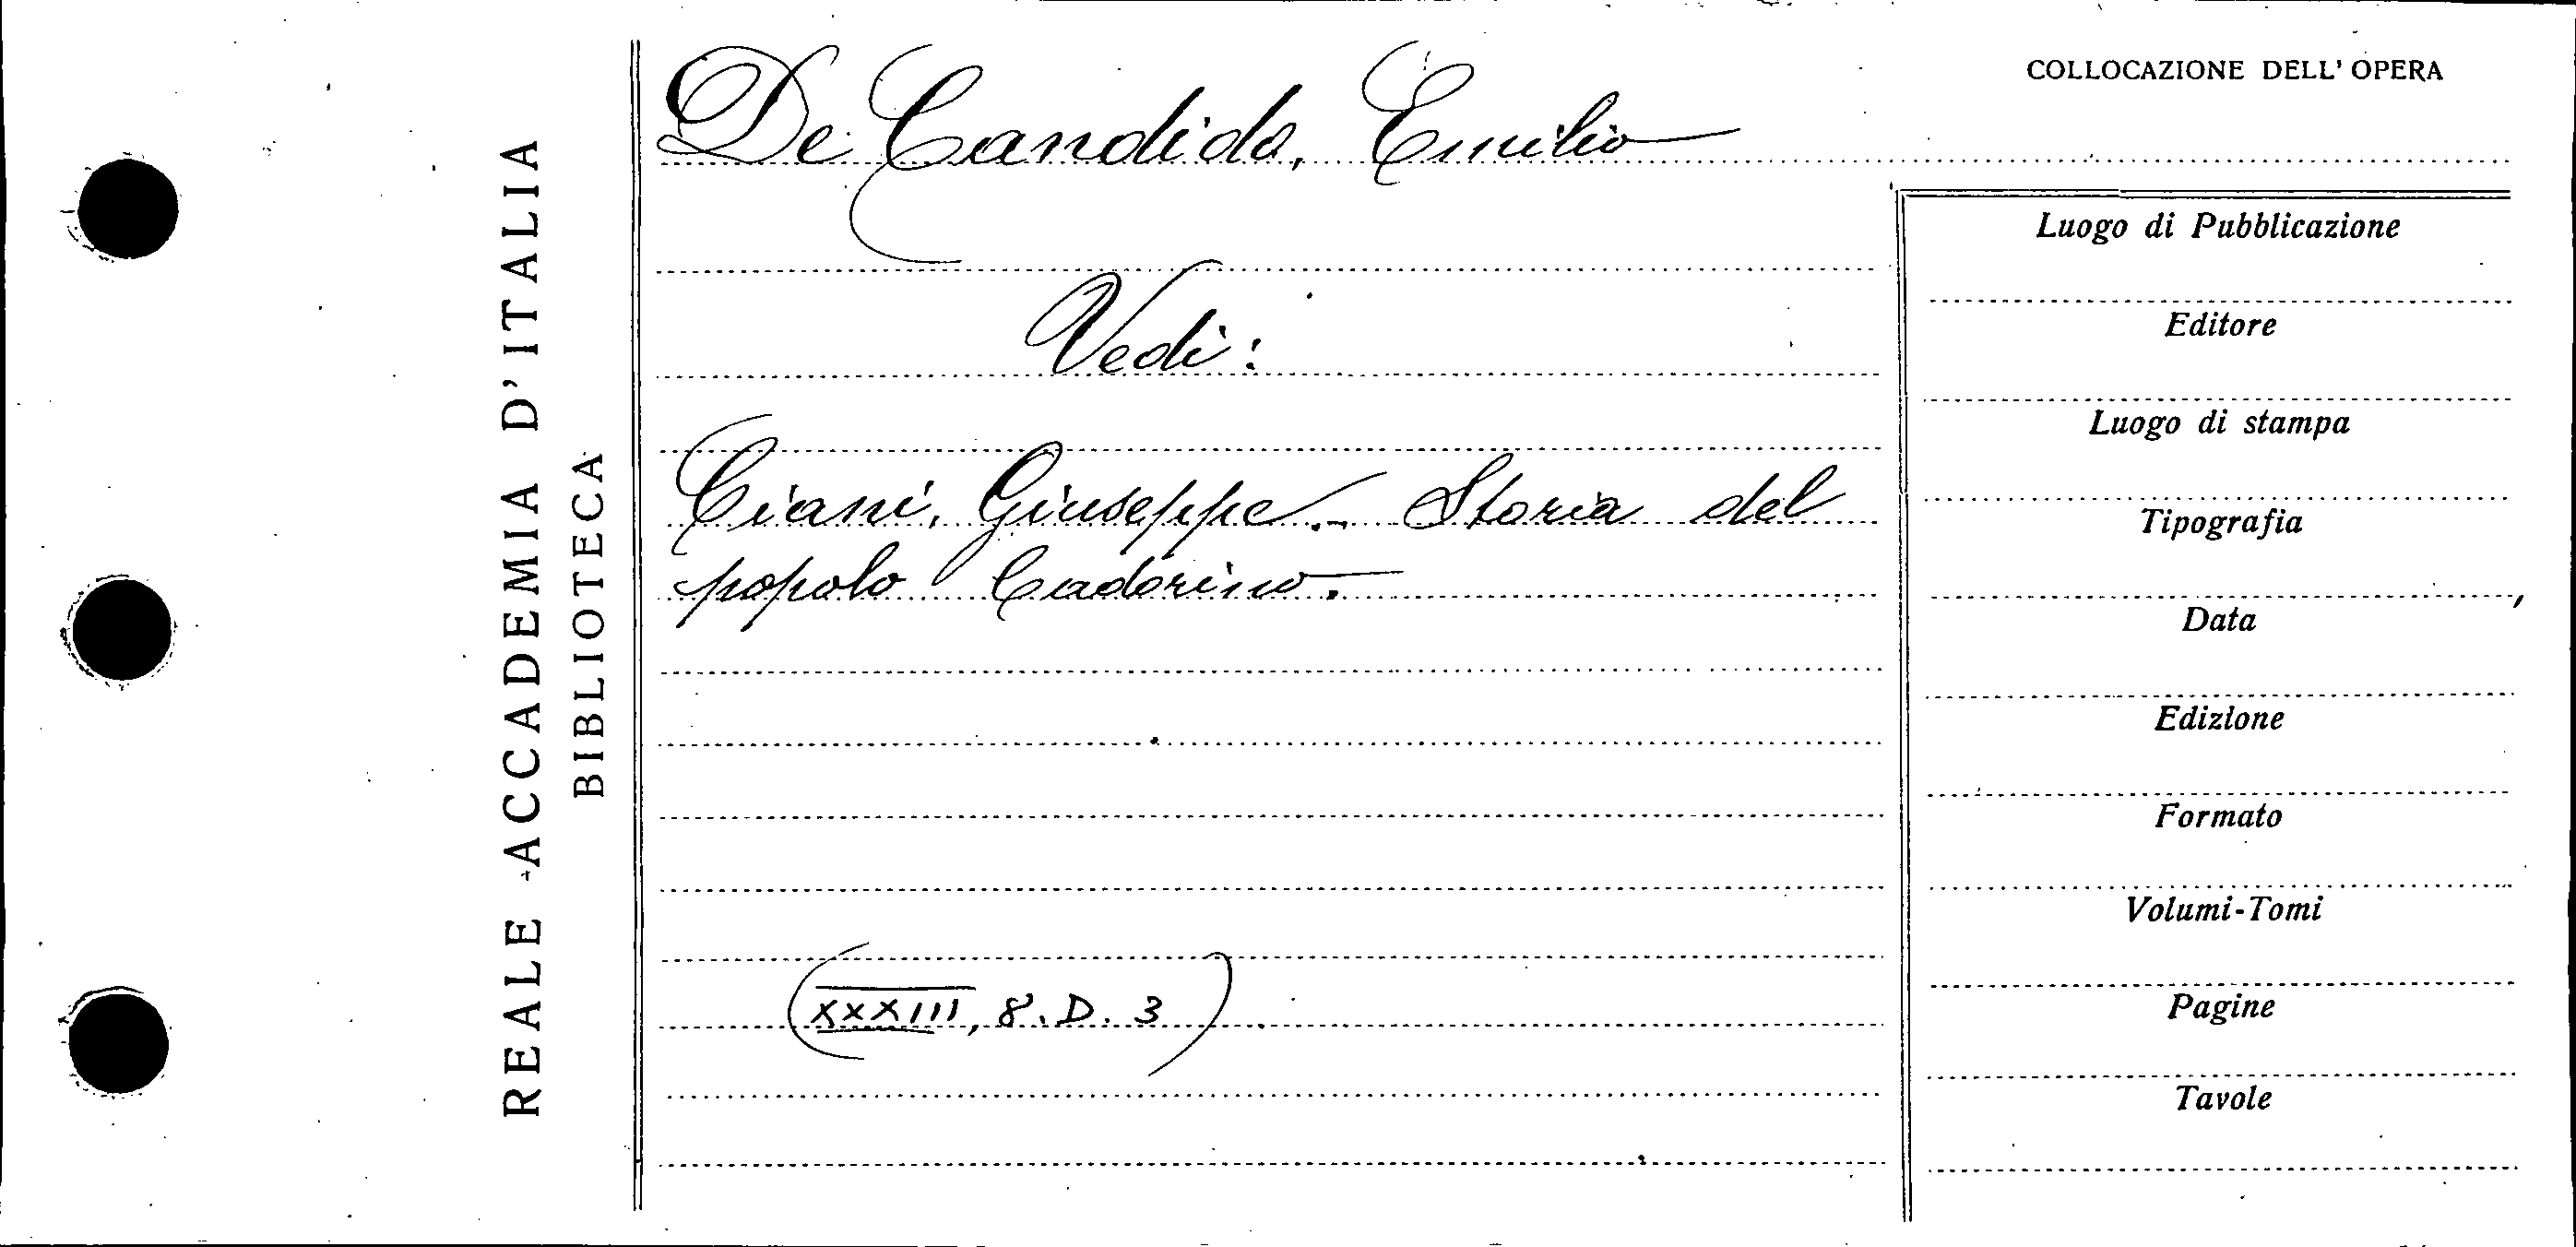 REALE ACCADEMIA D'ITALIA
BIBLIOTECA
De Candido, Emilio
Vedi:
Ciani, Giuseppe.- Storia del
popolo Cadorino.
(XXXIII, 8. D. 3)
COLLOCAZIONE DELL' OPERA
Luogo di Pubblicazione
Editore
Luogo di stampa
Tipografia
Data
Edizione
Formato
Volumi-Tomi
Pagine
Tavole